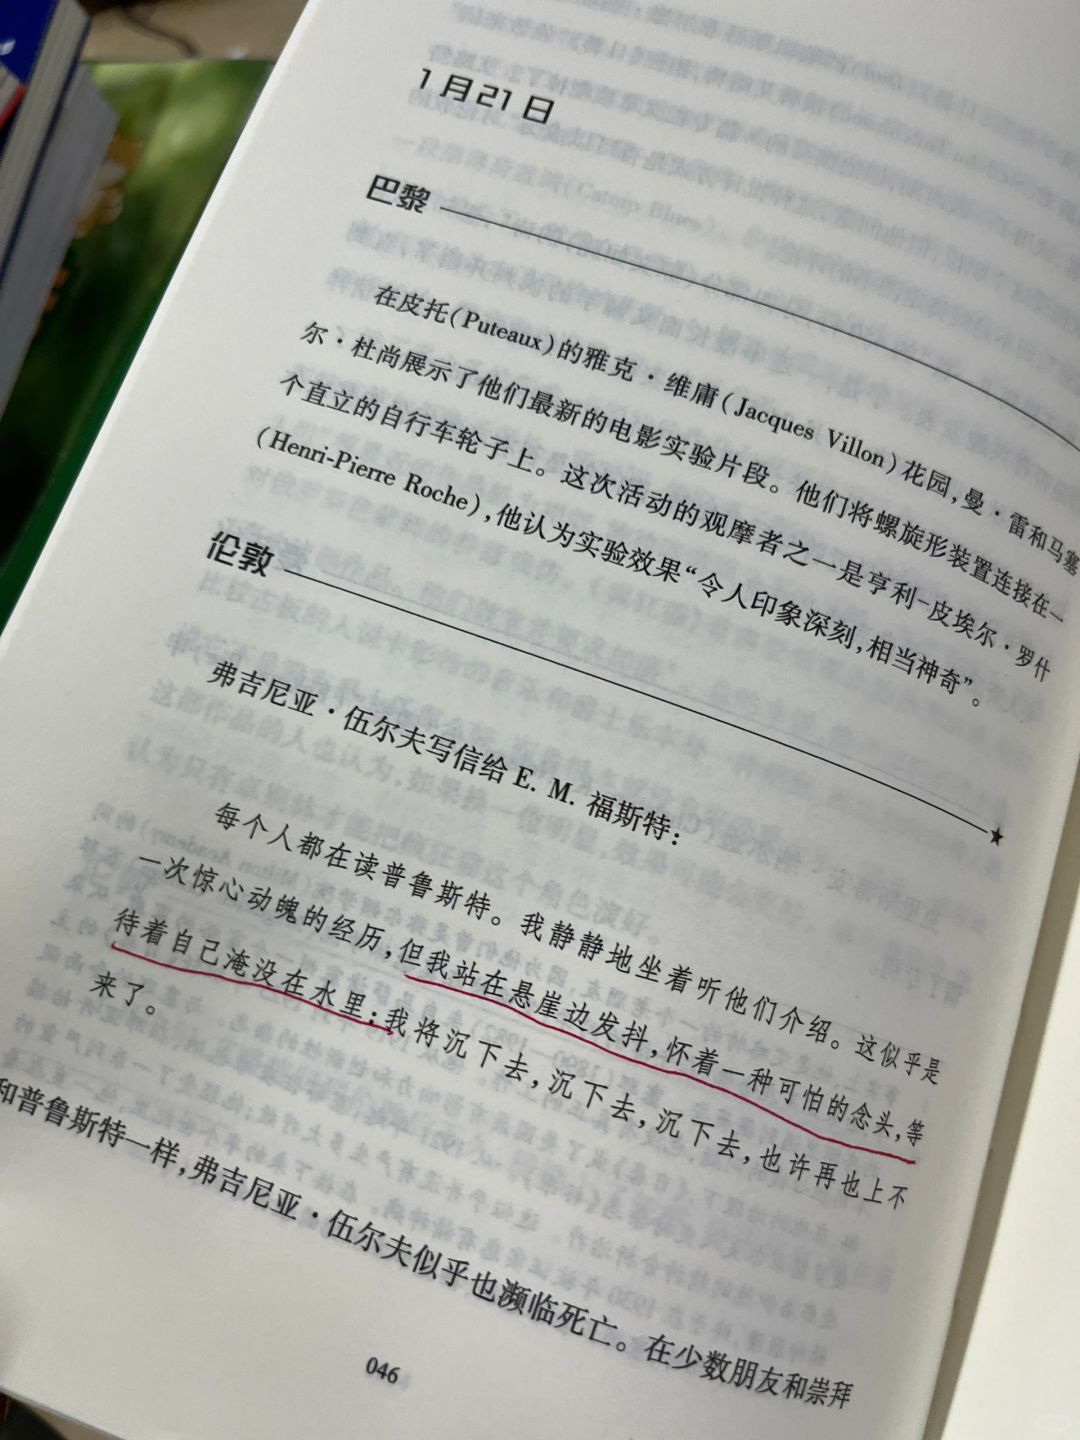 1月21日
巴黎
在皮托(Puteaux)的雅克·维庸(Jacques Villon)花园,曼·雷和马塞
尔·杜尚展示了他们最新的电影实验片段。他们将螺旋形装置连接在一
个直立的自行车轮子上。这次活动的观摩者之一是亨利-皮埃尔·罗什
(Henri-Pierre Roche),他认为实验效果“令人印象深刻,相当神奇”。
伦敦
弗吉尼亚·伍尔夫写信给 E. M. 福斯特:
每个人都在读普鲁斯特。我静静地坐着听他们介绍。这似乎是
一次惊心动魄的经历,但我站在悬崖边发抖,怀着一种可怕的念头,等
待着自己淹没在水里;我将沉下去,沉下去,沉下去,也许再也上不
来了。
和普鲁斯特一样,弗吉尼亚·伍尔夫似乎也濒临死亡。在少数朋友和崇拜
046